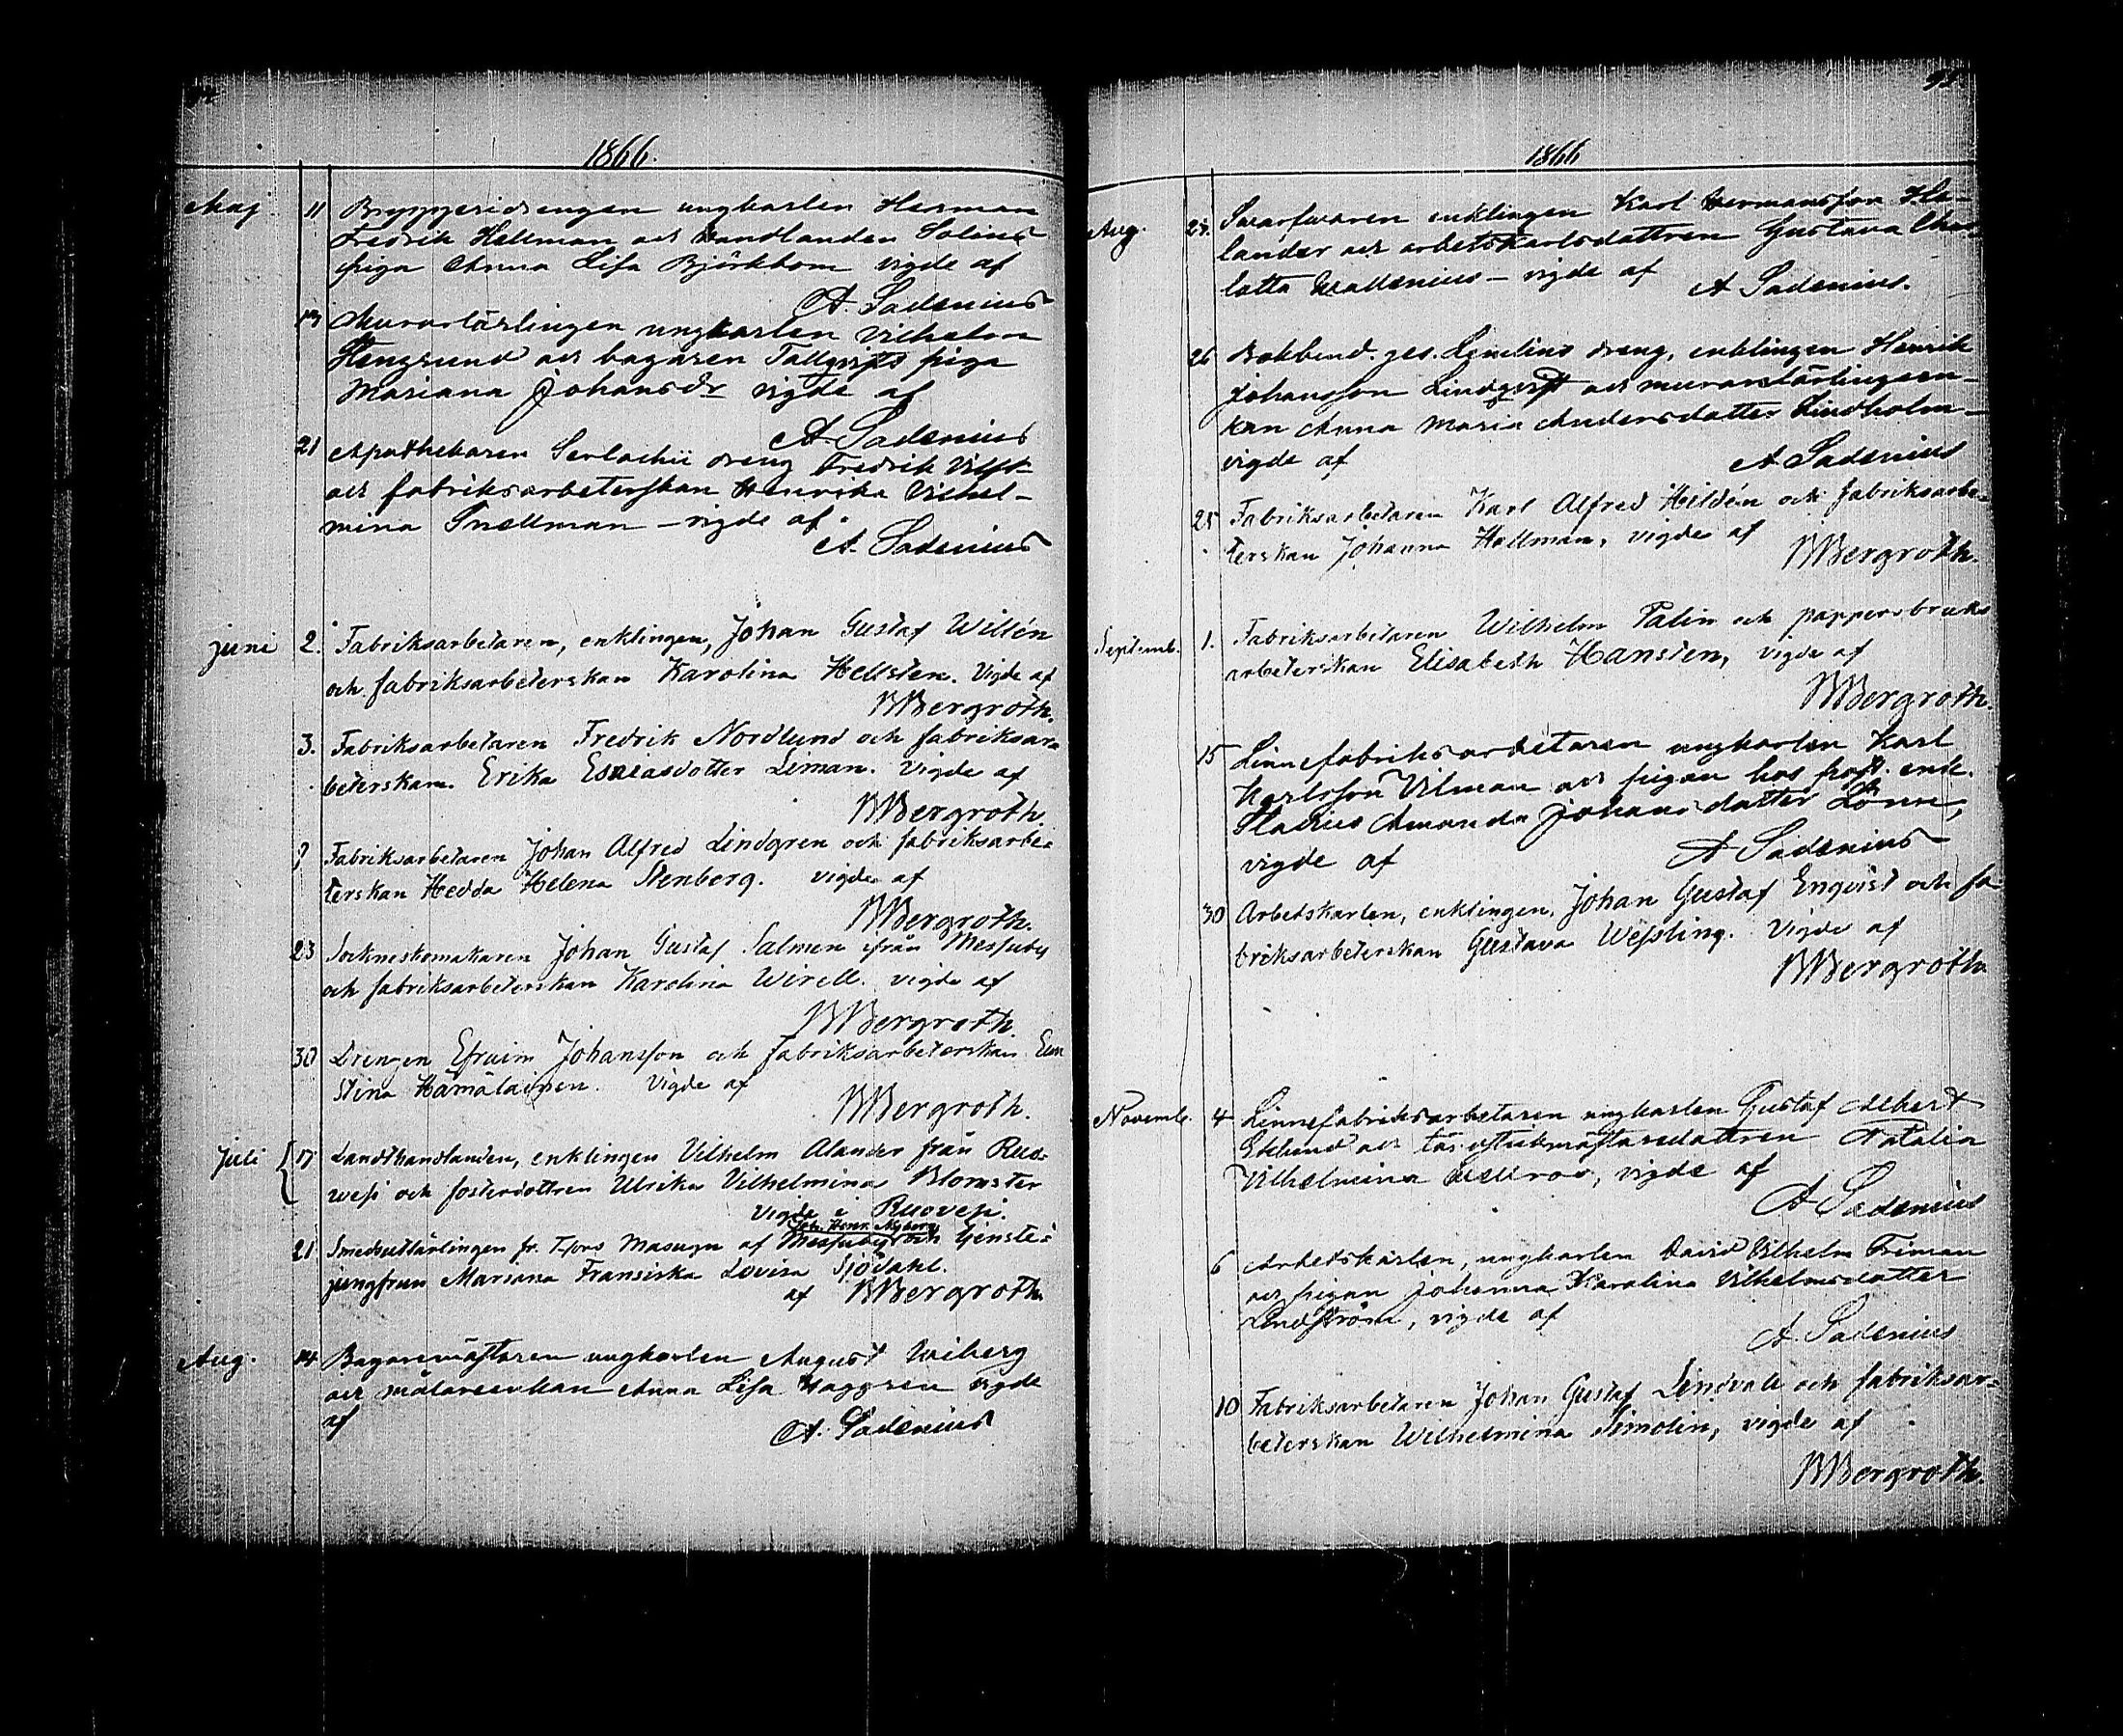 1866.
Maj 11 Bryggeridrengen ungkarlen Herman
Fredrik Hellman och handlanden Solins
piga Anna Lisa Björkbom vigde af
A. Sadenius
Murarlärlingen ungkarlen Vilhelm
Stengrund och bagaren Tallqvists piga
Mariana Johansdr vigde af
A. Sadenius
21 Apothekaren Serlachii dreng Fredrik
och fabriksarbeterskan Henrika Vilhel-
mina Snellman - vigde af
A. Sadenius
juni 2. Fabriksarbetaren, enklingen, Johan Gustaf Willén
och fabriksarbeterskan Karolina Hellsten. Vigde af
BBergroth.
3. Fabriksarbetaren Fredrik Nordlund och fabriksar=
beterskan Erika Esaiasdotter Liman. Vigde af
BBergroth.
Fabriksarbetaren Johan Alfred Lindgren och fabriksarbe=
terskan Hedda Helena Stenberg. vigde af
BBergroth.
23 Sockneskomakaren Johan Gustaf Salmen från Messuby
och fabriksarbeterskan Karolina Wirell. vigde af
BBergroth.
30 Drengen Efraim Johansson och fabriksarbeterskan Eva
Stina Hämäläinen. Vigde af
BBergroth.
Juli 17 Landthandlanden, enklingen Vilhelm Alander från Ruo-
wesi och fosterdottren Ulrika Vilhelmina Blomster
vigde i Ruovesi.
Joh. Henr. Nyberg
21 Smedsutlärlingen fr. T-fors Masugn af Messuby och tjenste=
jungfrun Mariana Fransiska Lovisa Sjödahl.
af BBergroth
Aug. 14 Bagaremästaren ungkarlen August Wiberg
och målareenkan Anna Lisa Haggren vigde
af
A. Sadenius
1866
Aug. Svarfvaren enklingen Karl Hermansson He-
lander och arbetskarlsdottren Gustava Char
lotta Wallenius - vigde af
A Sadenius.
26 Bokbind. ges. dreng, enklingen Henrik
Johansson Lindqvist och murarelärlingsen-
kan Anna Maria Andersdotter Lindholm-
vigde af
A Sadenius
25 Fabriksarbetaren Karl Alfred Hildén och fabriksarbe=
terskan Johanna Hellman, vigde af
BBergroth.
Septemb. 1. Fabriksarbetaren Wilhelm Palin och pappersbruks
arbeterskan Elisabeth Hansten, vigde af
BBergroth.
15 Linnefabriksarbetaren ungkarlen Karl
Karlsson Vilman och pigan hos prost. enk.
Amanda Johansdotter Lönn,
vigde af
A Sadenius
30 Arbetskarlen, enklingen, Johan Gustaf Enqvist och fa
briksarbeterskan Gustava Wessling. Vigde af
BBergroth
Novemb. 4 Linnefabriksarbetaren ungkarlen Gustaf Albert
Eklund och Natalia
Vilhelmina, vigde af
A Sadenius
6 Arbetskarlen, ungkarlen David Vilhelm Friman
och pigan Johanna Karolina Vilhelmsdotter
Lindström, vigde af
A. Sadenius
10 Fabriksarbetaren Johan Gustaf Lindvall och fabriksar=
beterskan Wilhelmina Simolin, vigde af
BBergroth